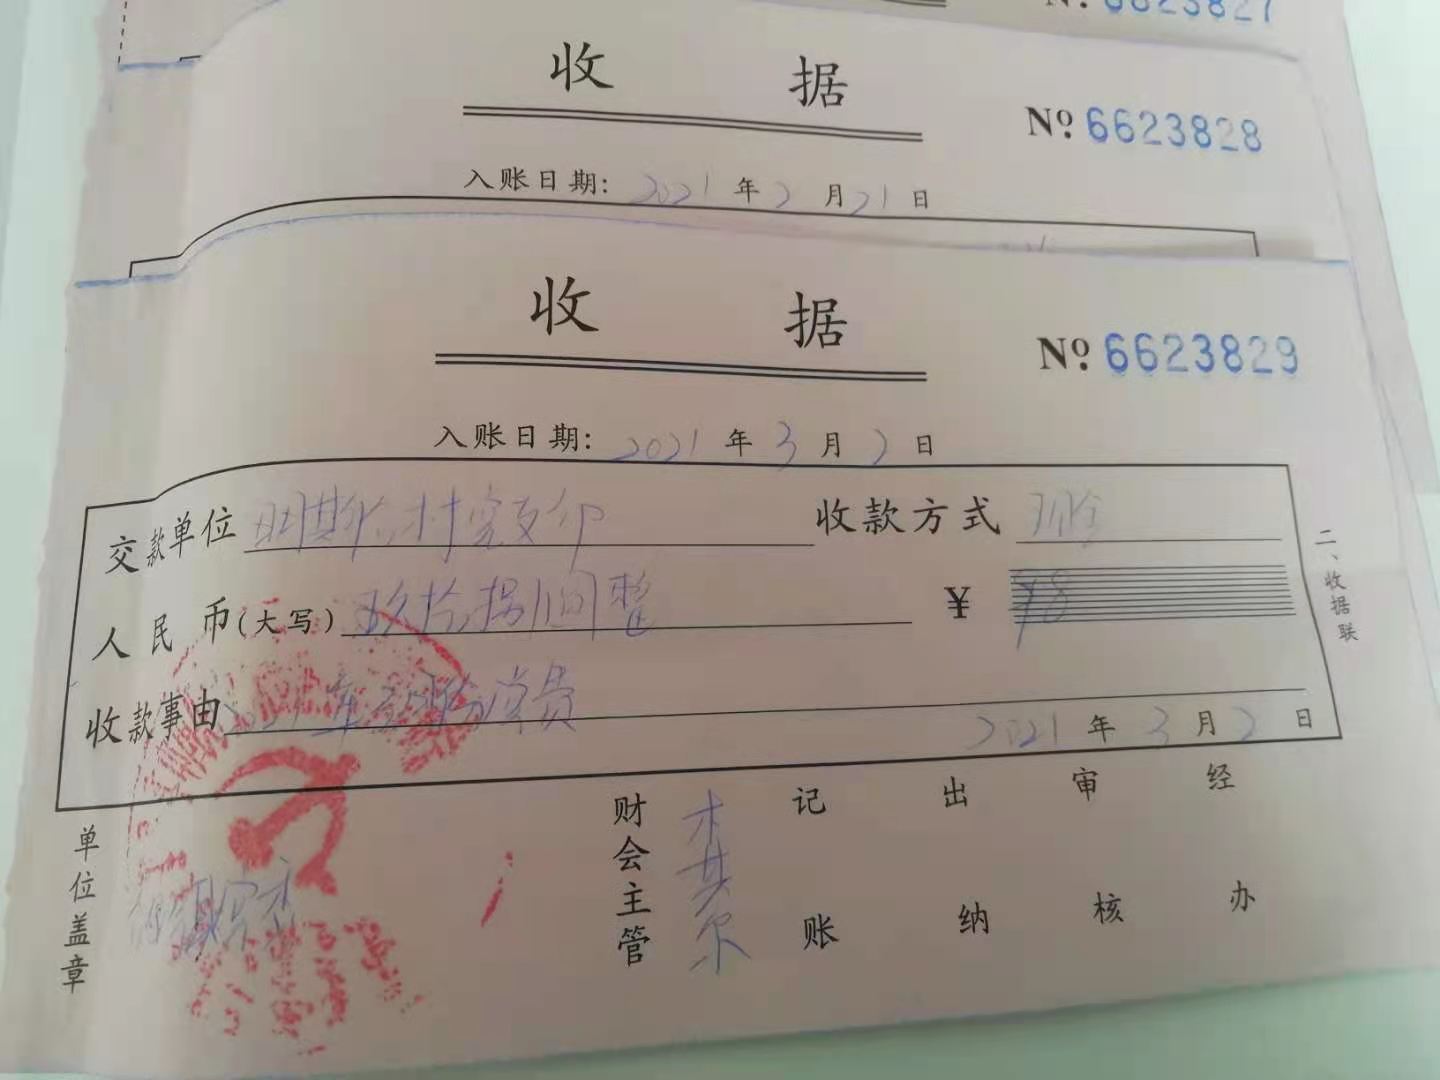 6623827
收 据
Nº 6623828
入账日期: 2021 年 2 月 21 日
收 据
Nº 6623829
入账日期: 2021 年 3 月 2 日
交款单位 收款方式 现金
人民币(大写) 玖拾捌 整 ¥ 98
收款事由 党员
2021 年 3 月 2 日
二、收据联
单位盖章
财会主管
记账
出纳
审核
经办